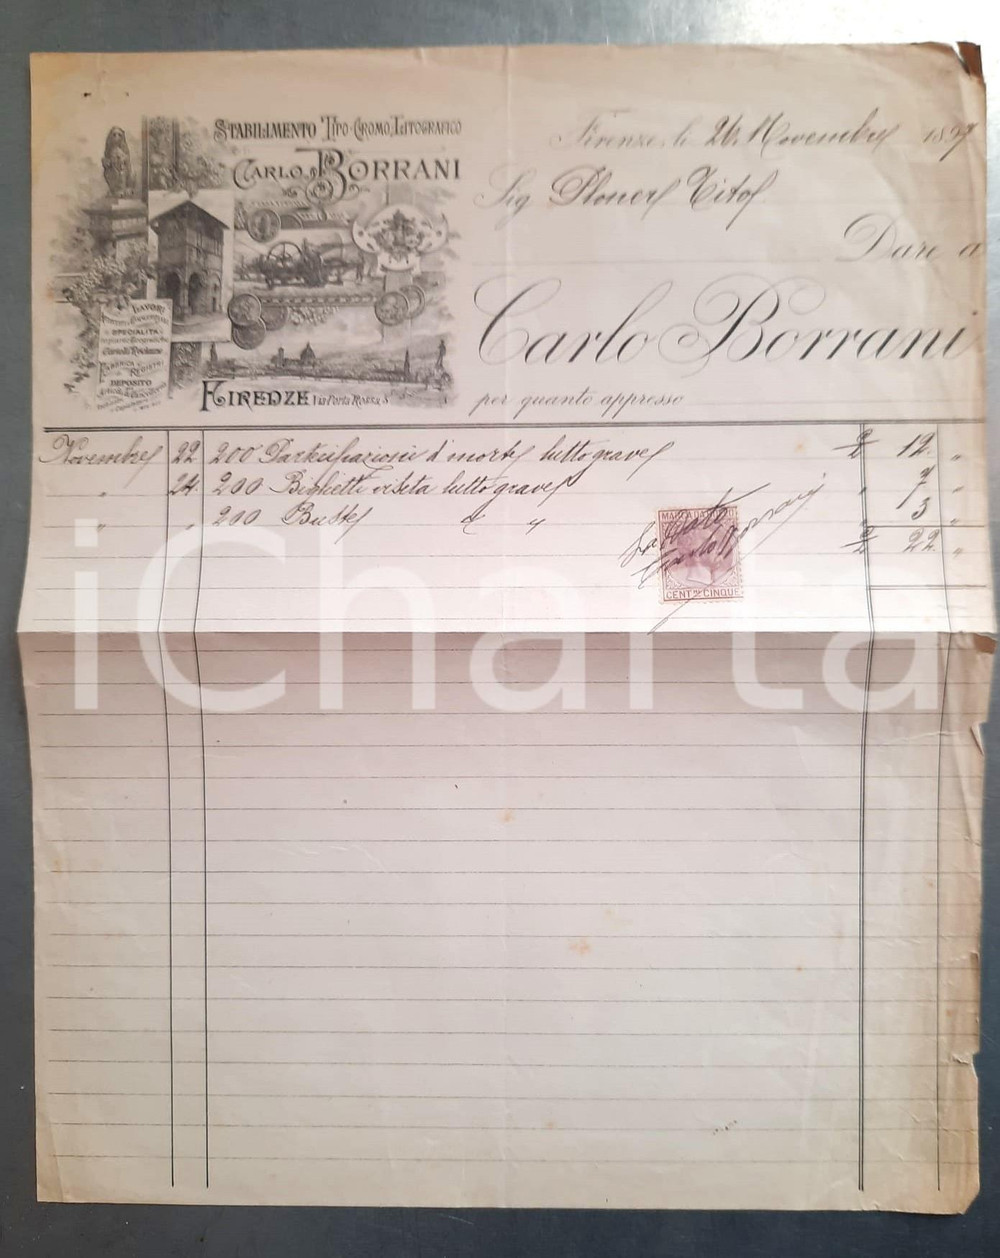 STABILIMENTO TIPO-CROMO-LITOGRAFICO
CARLO BORRANI
LAVORI
SPECIALITÀ
FABBRICA REGISTRI
DEPOSITO
FIRENZE Via Porta Rossa 8
Firenze, li 26 Novembre 1897
Sig Ploner Tito
Dare a
Carlo Borrani
per quanto appresso
Novembre 22 200 Partecipazioni d'morte lutto grave £ 12 "
" 24 200 Biglietti visita lutto grave " 7 "
" " 200 Buste " " " 3 "
£ 22 "
Saldato
Carlo Borrani
MARCA DA BOLLO
CENT. MI CINQUE
iCharta